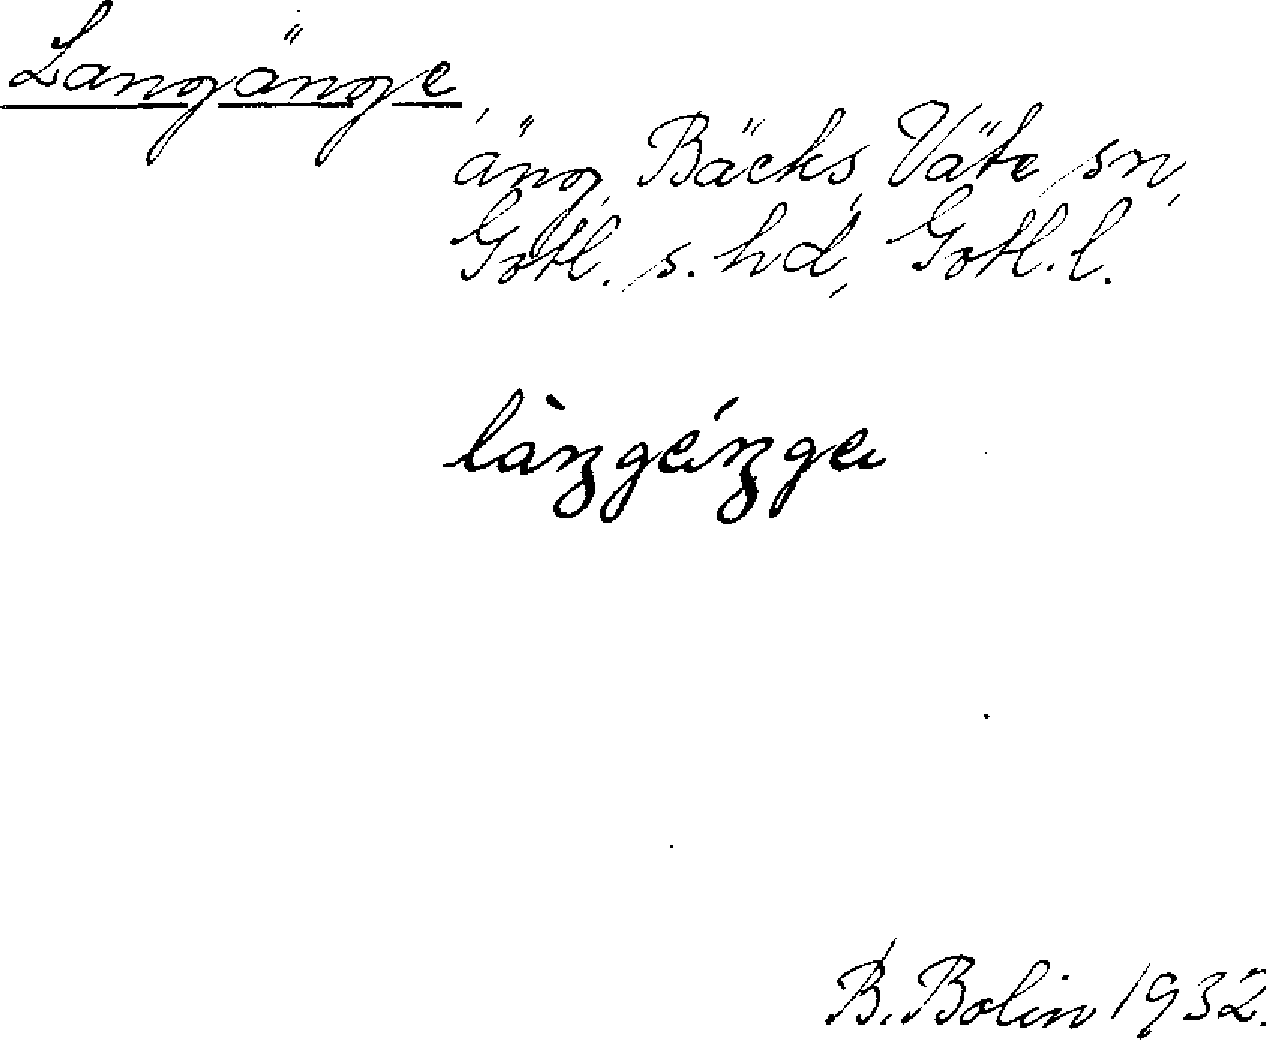 Langänge
äng, Bäcks, Väte sn,
Gotl. s. hd, Gotl. l.
B. Bolin 1932.